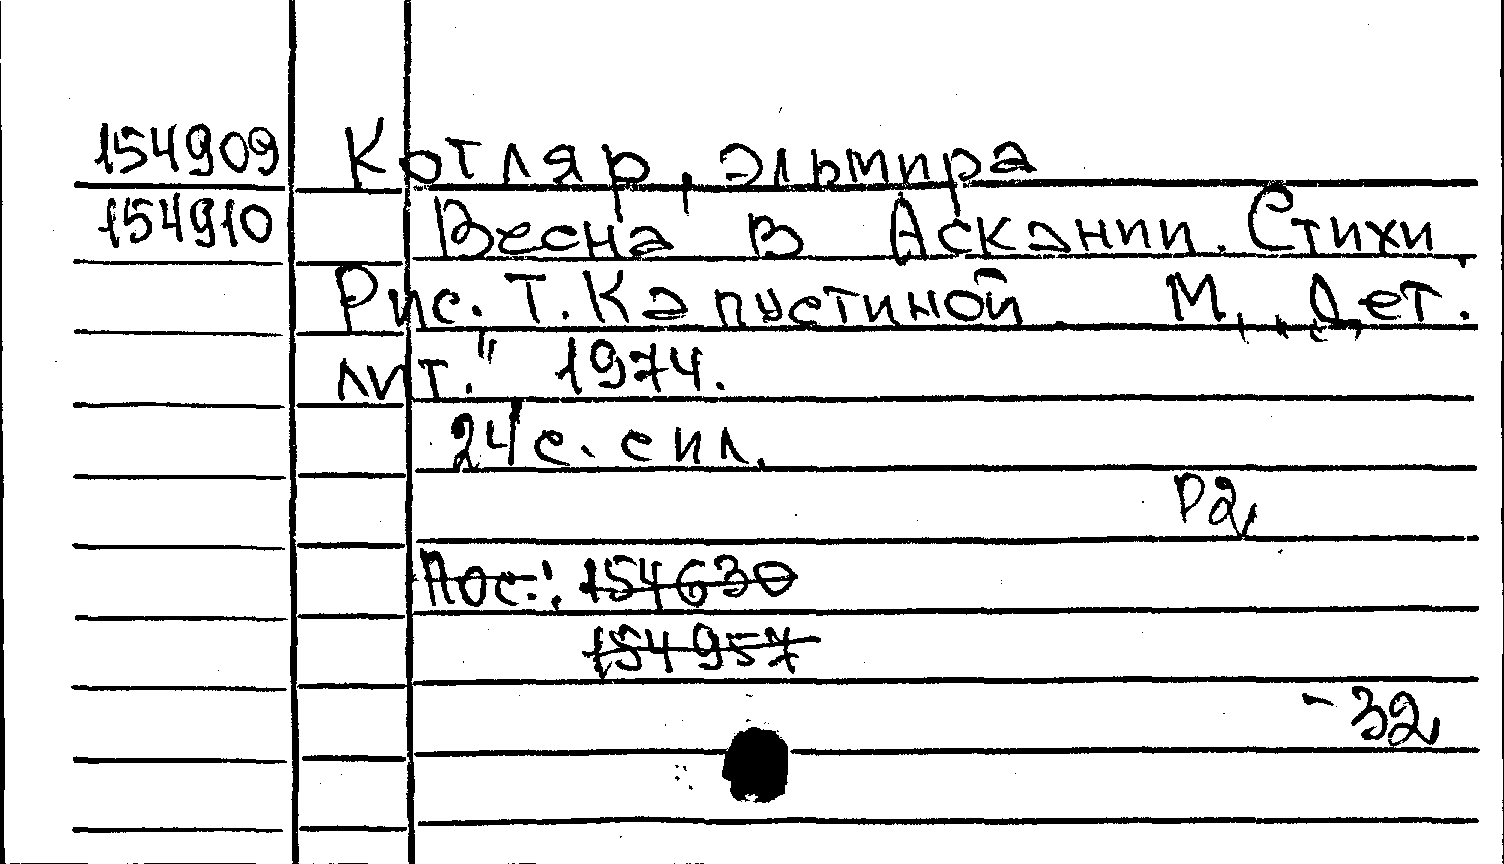 154909 Котляр, Эльмира
154910 Весна в Аскании. Стихи.
Рис. Т. Капустиной. М., „Дет.
лит." 1974.
24 с. с ил.
Р2
Пос.: 154630
154957
-32